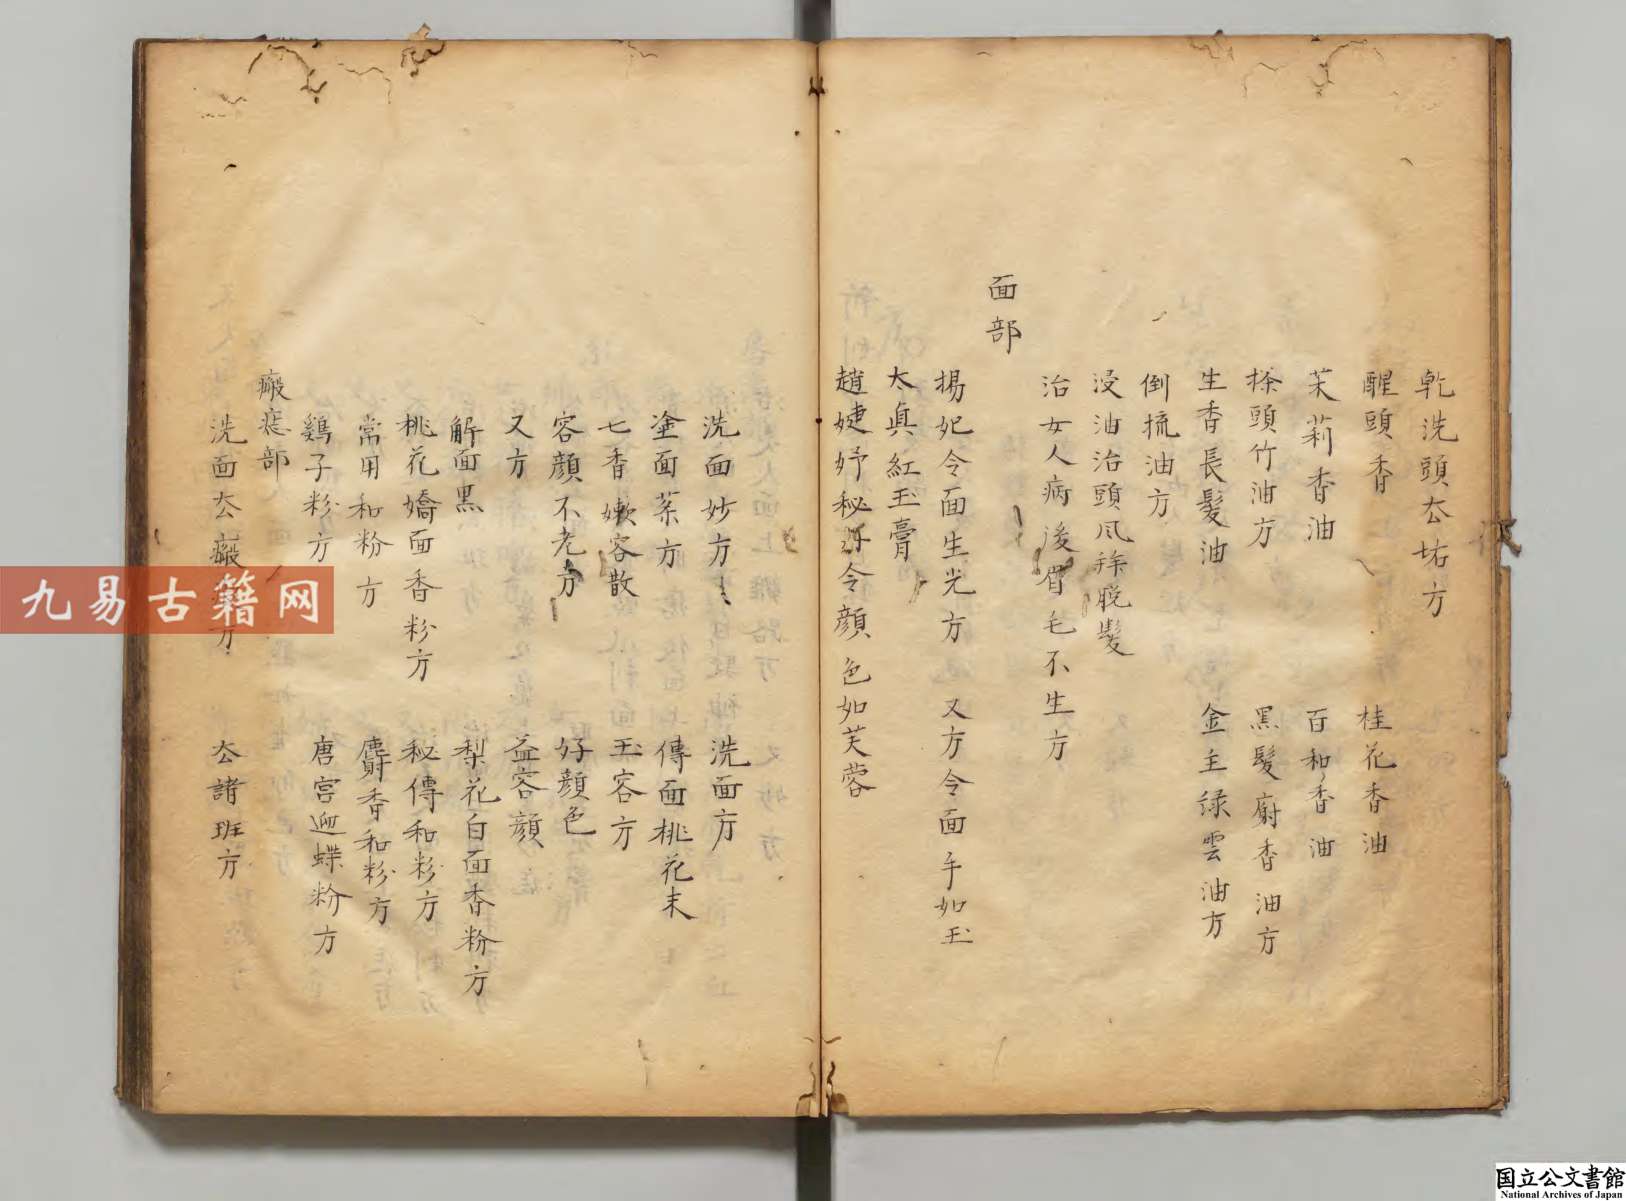 乾洗頭厺垢方
醒頭香　桂花香油
茉莉香油　百和香油
搽頭竹油方　黑髮麝香油方
生香長髮油　金主绿雲油方
倒梳油方
浸油治頭风痒脱髮
治女人病後眉毛不生方
面部
楊妃令面生光方　又方令面手如玉
太真紅玉膏
趙婕妤秘 令顔色如芙蓉
洗面妙方　洗面方
塗面藥方　傳面桃花末
七香嫩容散　玉容方
容顔不老方　好顔色
又方　益容顔
解面黒　梨花白面香粉方
桃花嬌面香粉方　秘傳和粉方
常用和粉方　麝香和粉方
鷄子粉方　唐宫迎蝶粉方
瘢痣部
洗面厺瘢 方　厺諸斑方
九易古籍网
国立公文書館
National Archives of Japan